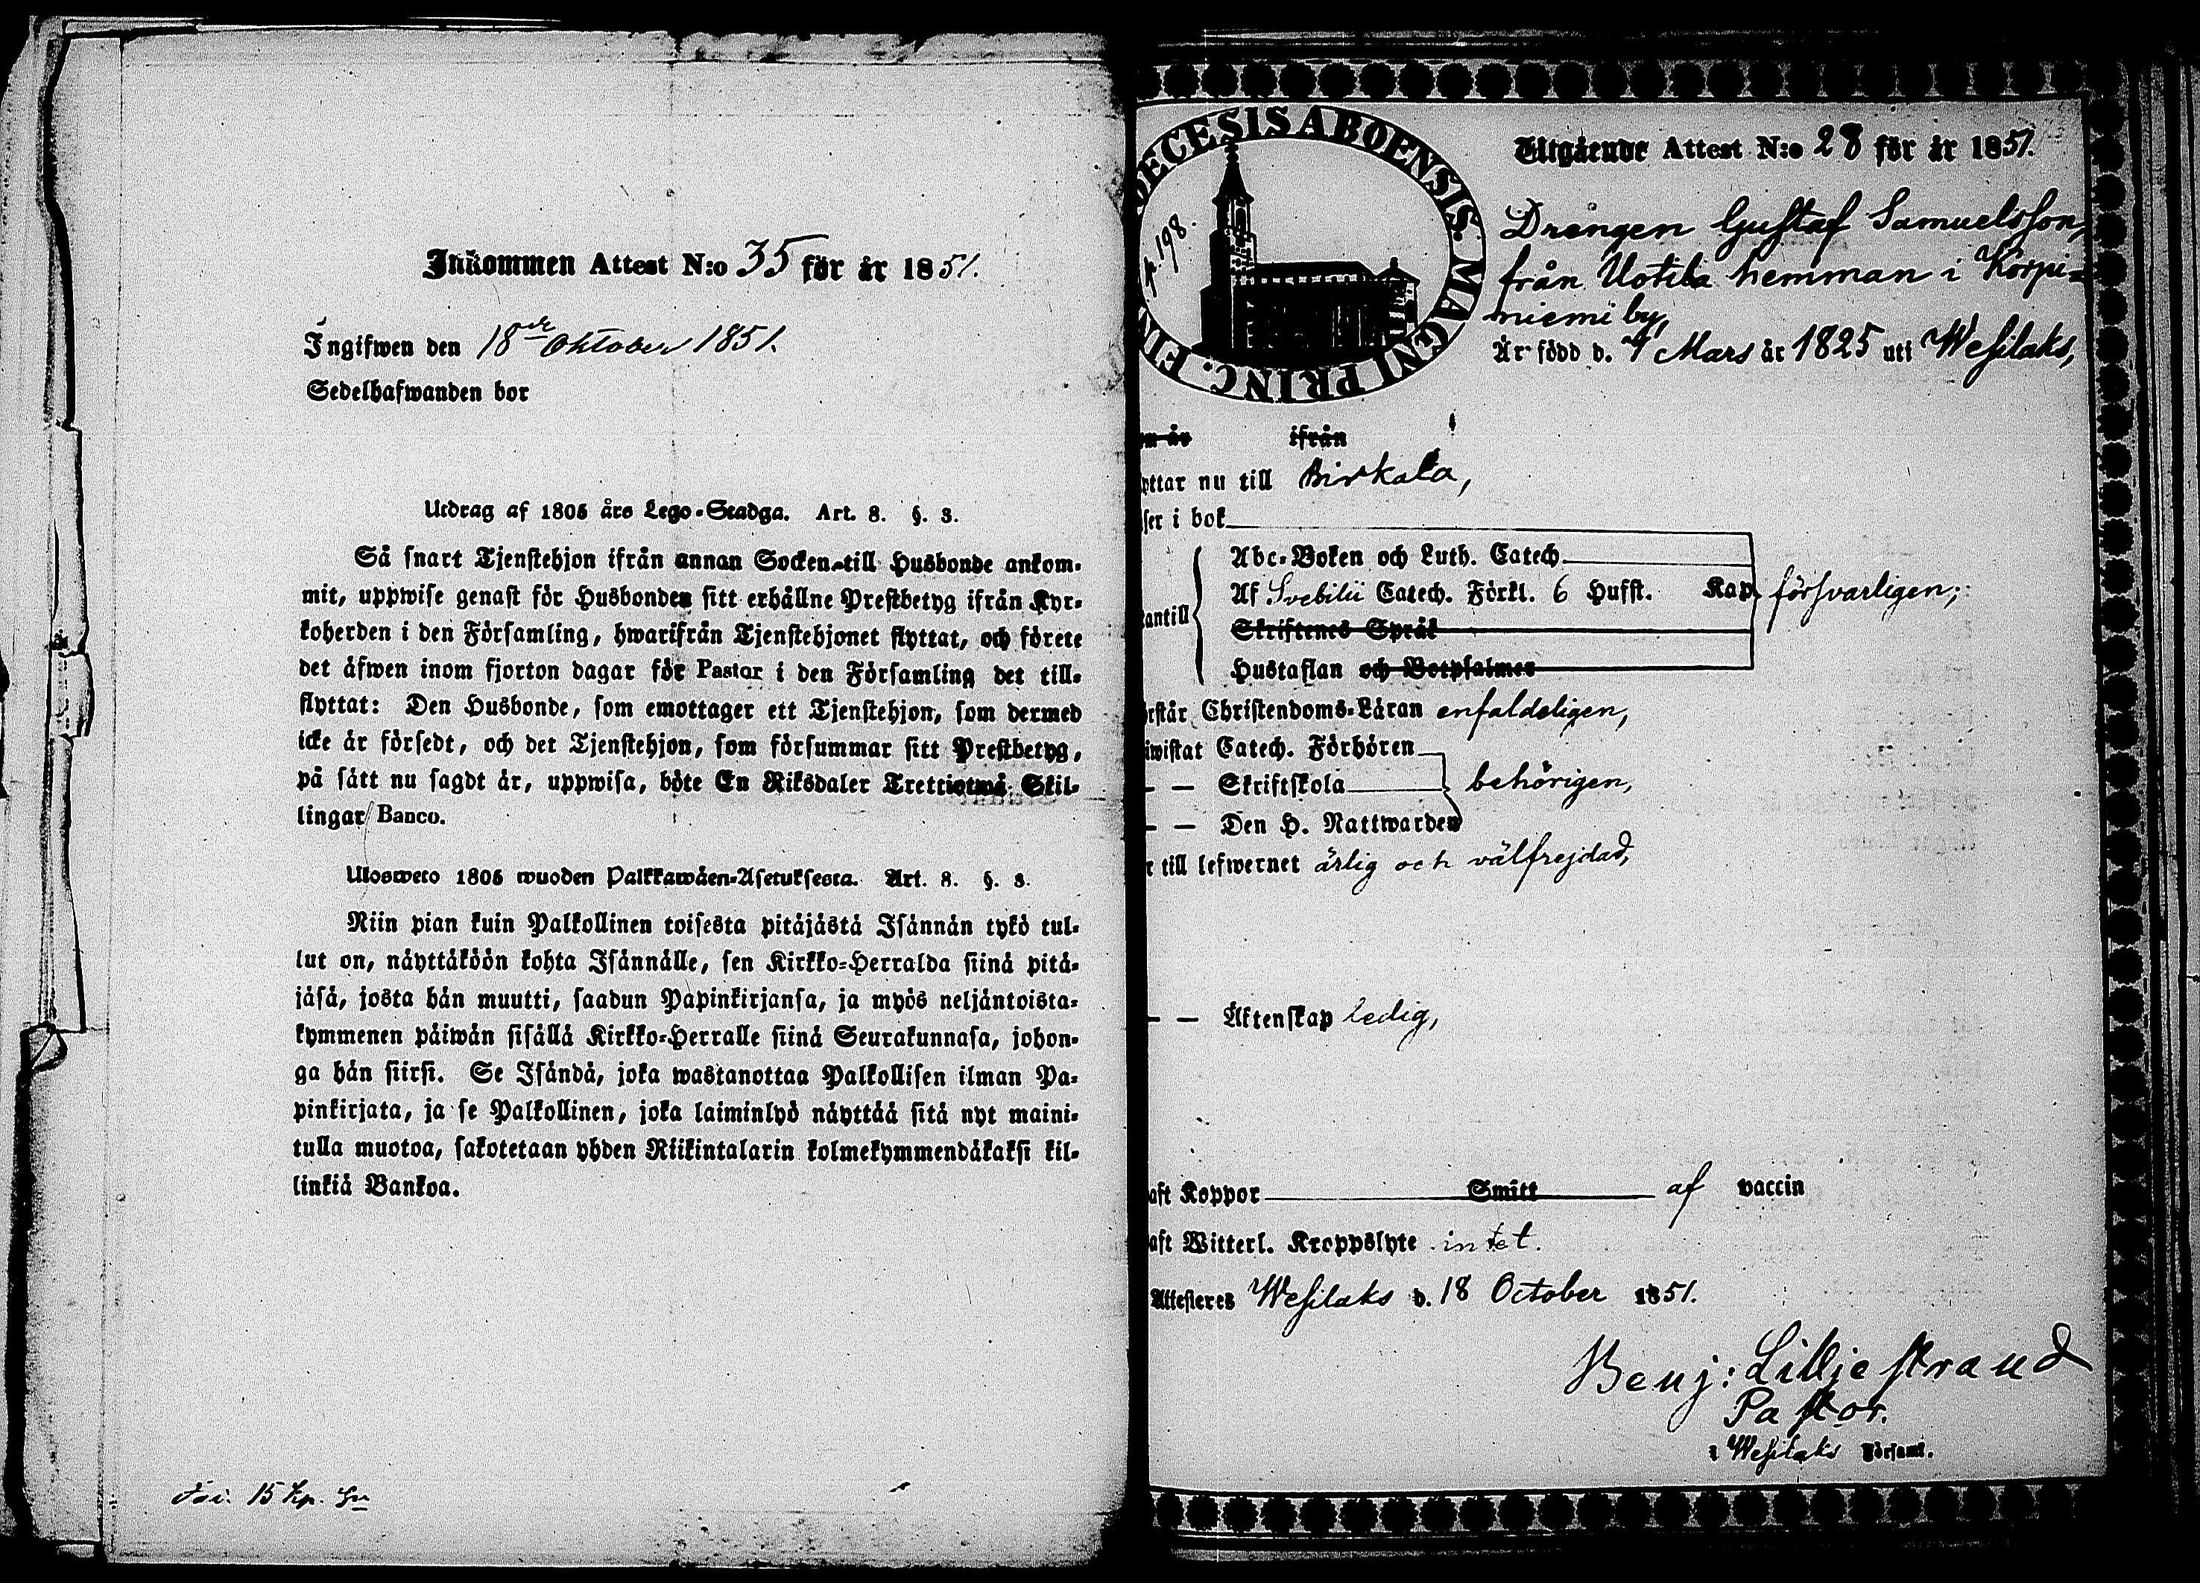 Inkommen Attest N:o 35 för år 1851.
Ingifwen den 18de Oktober 1851.
Sedelhafwanden bor
Utdrag af 1805 års Lego-Stadga. Art. 8. §. 3.
Så snart Tjenstehjon ifrån annan Socken till Husbonde ankom-
mit, uppwise genast för Husbonden sitt erhållne Prestbetyg ifrån Kyr-
koherden i den Församling, hwarifrån Tjenstehjonet flyttat, och förete
det äfwen inom fjorton dagar för Pastor i den Församling det till-
flyttat: Den Husbonde, som emottager ett Tjenstehjon, som dermed
icke är försedt, och det Tjenstehjon, som försummar sitt Prestbetyg,
på sätt nu sagdt är, uppwisa, böte En Riksdaler Trettiotwå Skil-
lingar Banco.
Ulosweto 1805 wuoden Palkkawäen-Asetuksesta. Art. 8. §. 3.
Niin pian kuin Palkollinen toisesta pitäjästä Isännän tykö tul-
lut on, näyttäköön kohta Isännälle, sen Kirkko-Herralda siinä pitä-
jäsä, josta hän muutti, saadun Papinkirjansa, ja myös neljäntoista-
kymmenen päiwän sisällä Kirkko-Herralle siinä Seurakunnasa, johon-
ga hän siirsi. Se Isändä, joka wastanottaa Palkollisen ilman Pa-
pinkirjata, ja se Palkollinen, joka laiminlyö näyttää sitä nyt maini-
tulla muotoa, sakotetaan yhden Riikintalarin kolmekymmendäkaksi kil-
linkiä Bankoa.
15 kp.
DECESIS ABOENSIS. MAGNI PRINC. FIN
198.
Utgående Attest N:o 28 för år 1851.
Drengen Gustaf Samuelsson,
från Uotila hemman i Korpi=
niemi by,
Är född d. 7 Mars år 1825 uti Wesilaks,
en år ifrån
yttar nu till Birkala,
ser i bok
Abc-Boken och Luth. Catech.
Af Svebilii Catech. Förkl. 6 Hufst. Kap. försvarligen;
antill
Skriftenes Språk
Hustaflan och Botpsalmer
rstår Christendoms-Läran enfaldeligen,
iwistat Catech. Förhören
— — Skriftskola behörigen,
— — Den H. Nattwarden
r till lefwernet ärlig och välfrejdad,
— — Äktenskap ledig,
aft Koppor Smitt af vaccin
aft Witterl. Kroppslyte intet.
Attesteres Wesilaks d. 18 October 1851.
Benj: Lilljestrand
Pastor.
i Wesilaks Församl.